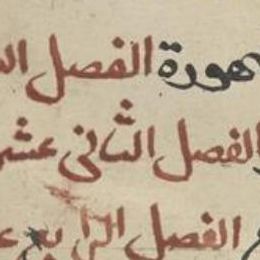 هورة الفصل
الفصل الثانى عشر
الفصل الرابع